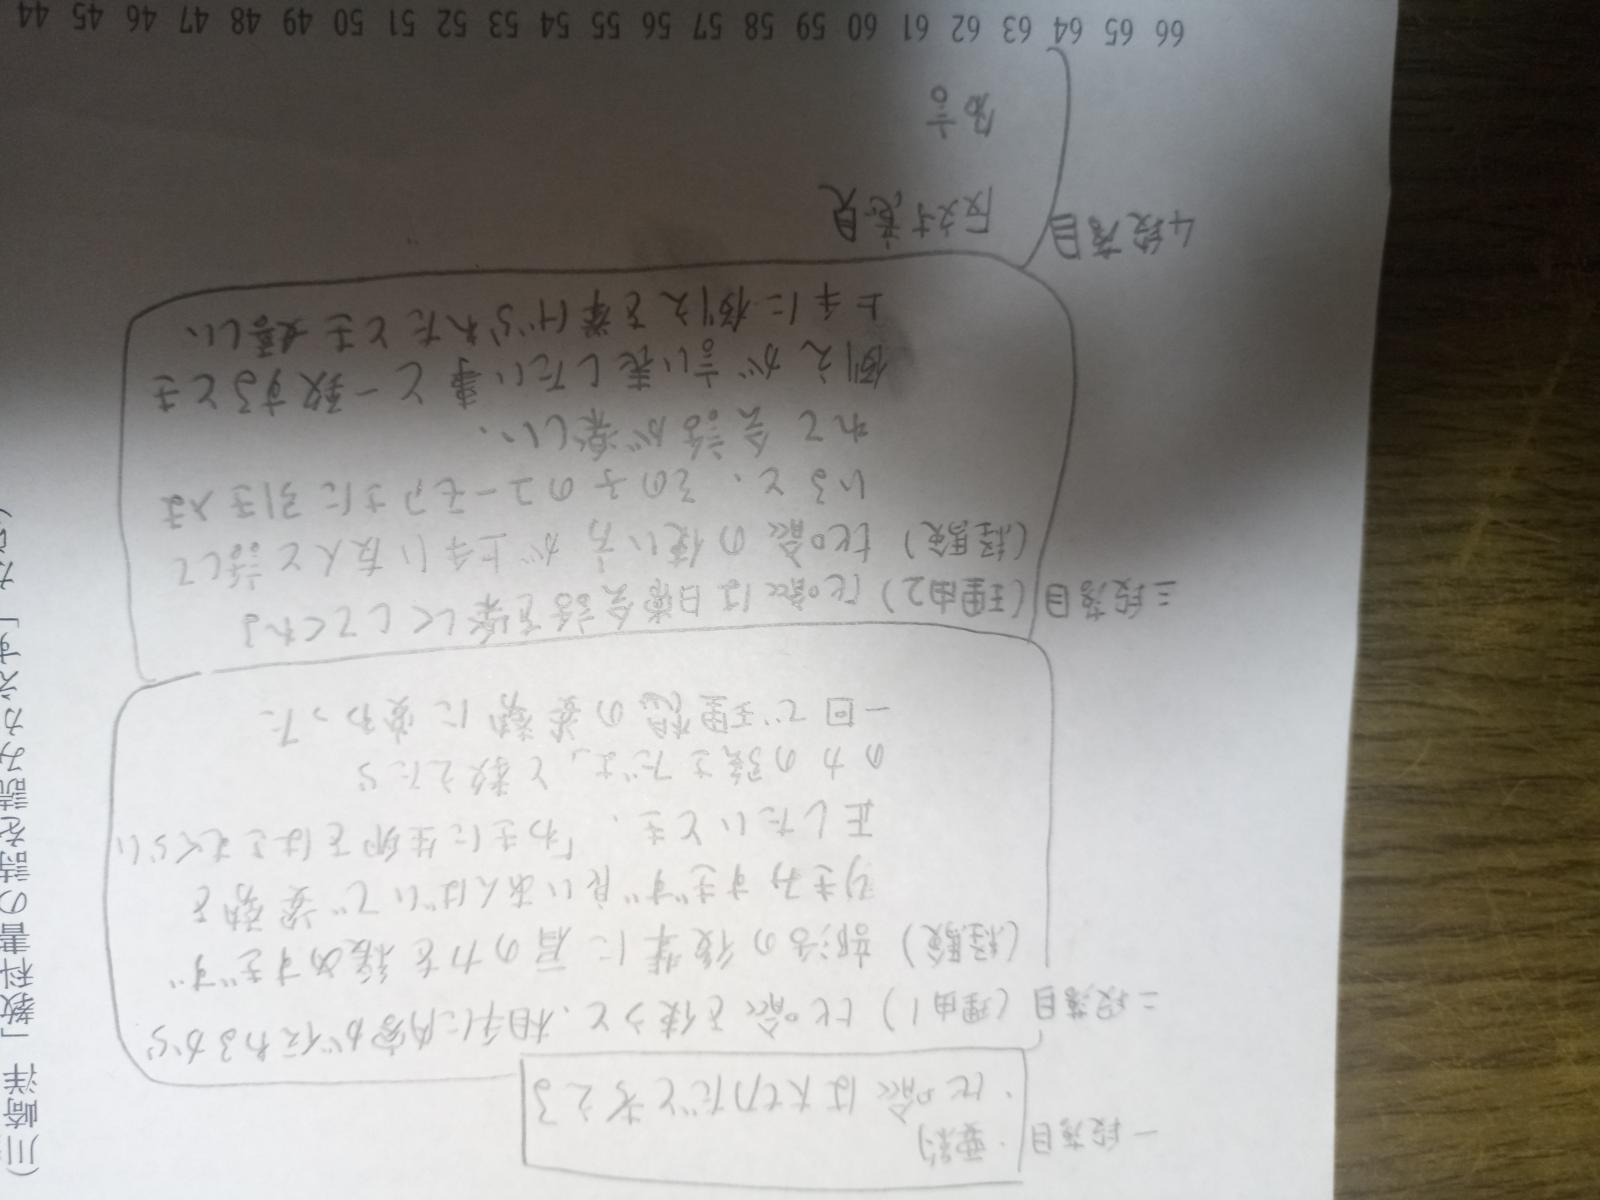 一段落目 ・要約
・比喩は大切だと考える
二段落目 (理由1) 比喩を使うと、相手に内容が伝わるから
(経験) 部活の後輩に肩の力を緩めすぎず
りきみすぎず良いあんばいで姿勢を
正したいとき、「わきに生卵をはさむくらい
の力の強さだよ」と教えたら
一回で理想の姿勢に変わった
三段落目 (理由2) 比喩は日常会話を楽しくしてくれる
(経験) 比喩の使い方が上手い友人と話して
いると、その子のユーモアさに引き込ま
れて会話が楽しい、
例えが言い表したい事と一致するとき
上手に例えを挙げられたとき嬉しい、
4段落目 反対意見
助言
66 65 64 63 62 61 60 59 58 57 56 55 54 53 52 51 50 49 48 47 46 45 44
(川崎洋「教科書の詩を読みかえす」